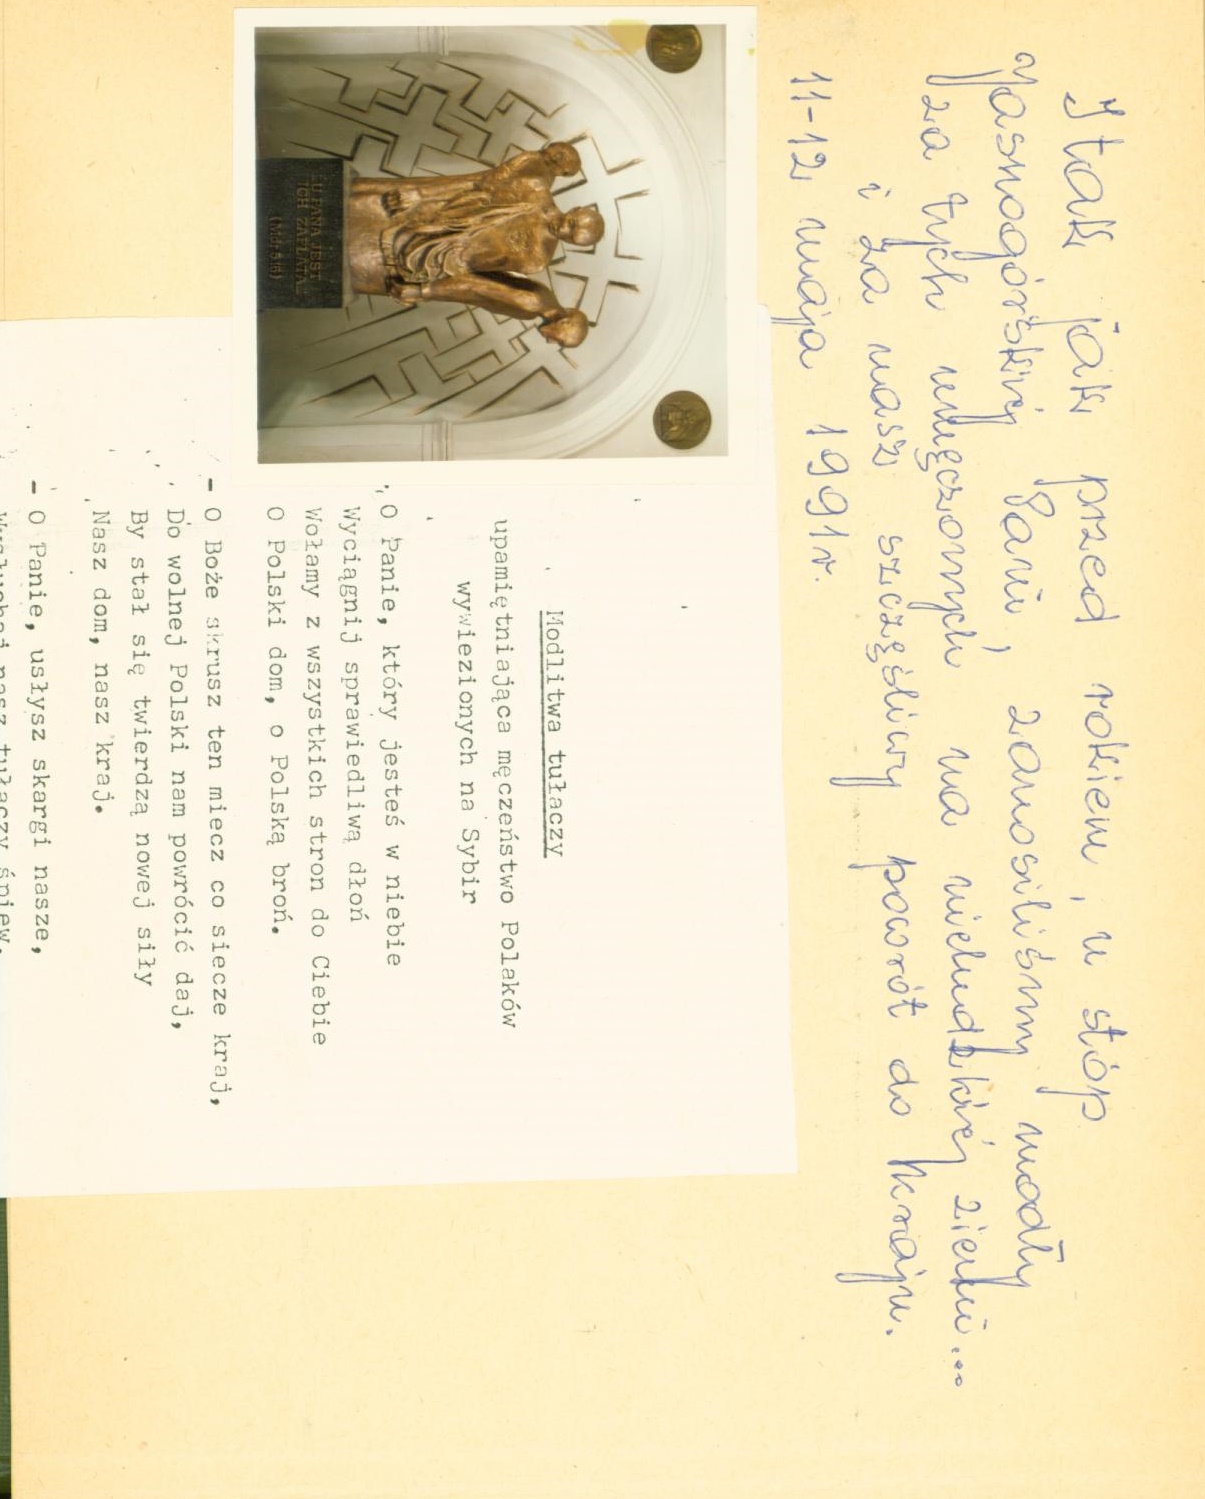 I tak jak przed rokiem, u stóp
Jasnogórskiej Pani, zanosiliśmy modły
za tych umęczonych na nieludzkiej ziemi...
i za nasz szczęśliwy powrót do kraju.
11-12 maja 1991r.
U PANA JEST
ICH ZAPŁATA
(Mdr 5,16)
Modlitwa tułaczy
upamiętniająca męczeństwo Polaków
wywiezionych na Sybir
O Panie, który jesteś w niebie
Wyciągnij sprawiedliwą dłoń
Wołamy z wszystkich stron do Ciebie
O Polski dom, o Polską broń.
- O Boże skrusz ten miecz co siecze kraj,
Do wolnej Polski nam powrócić daj,
By stał się twierdzą nowej siły
Nasz dom, nasz kraj.
- O Panie, usłysz skargi nasze,
Wysłuchaj nasz tułaczy śpiew,